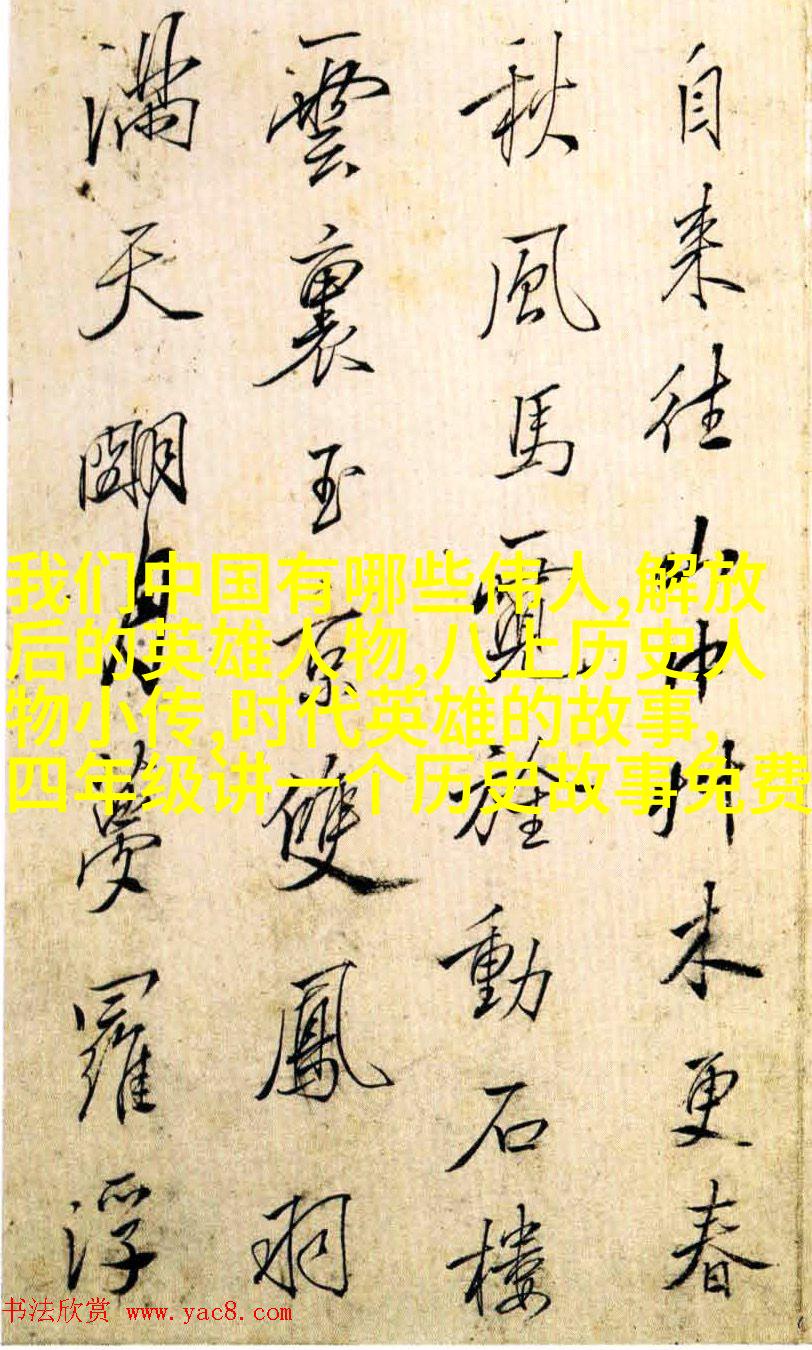 自来往山中艸木更春
秋風馬霓旌動石樓
雲裏玉京雙鳳羽
滿天朙月夢羅浮
我们中国有哪些伟人,解放
后的英雄人物,八上历史人
物小传,时代英雄的故事,
四年级讲一个历史故事免费
书法欣赏 www.yac8.com